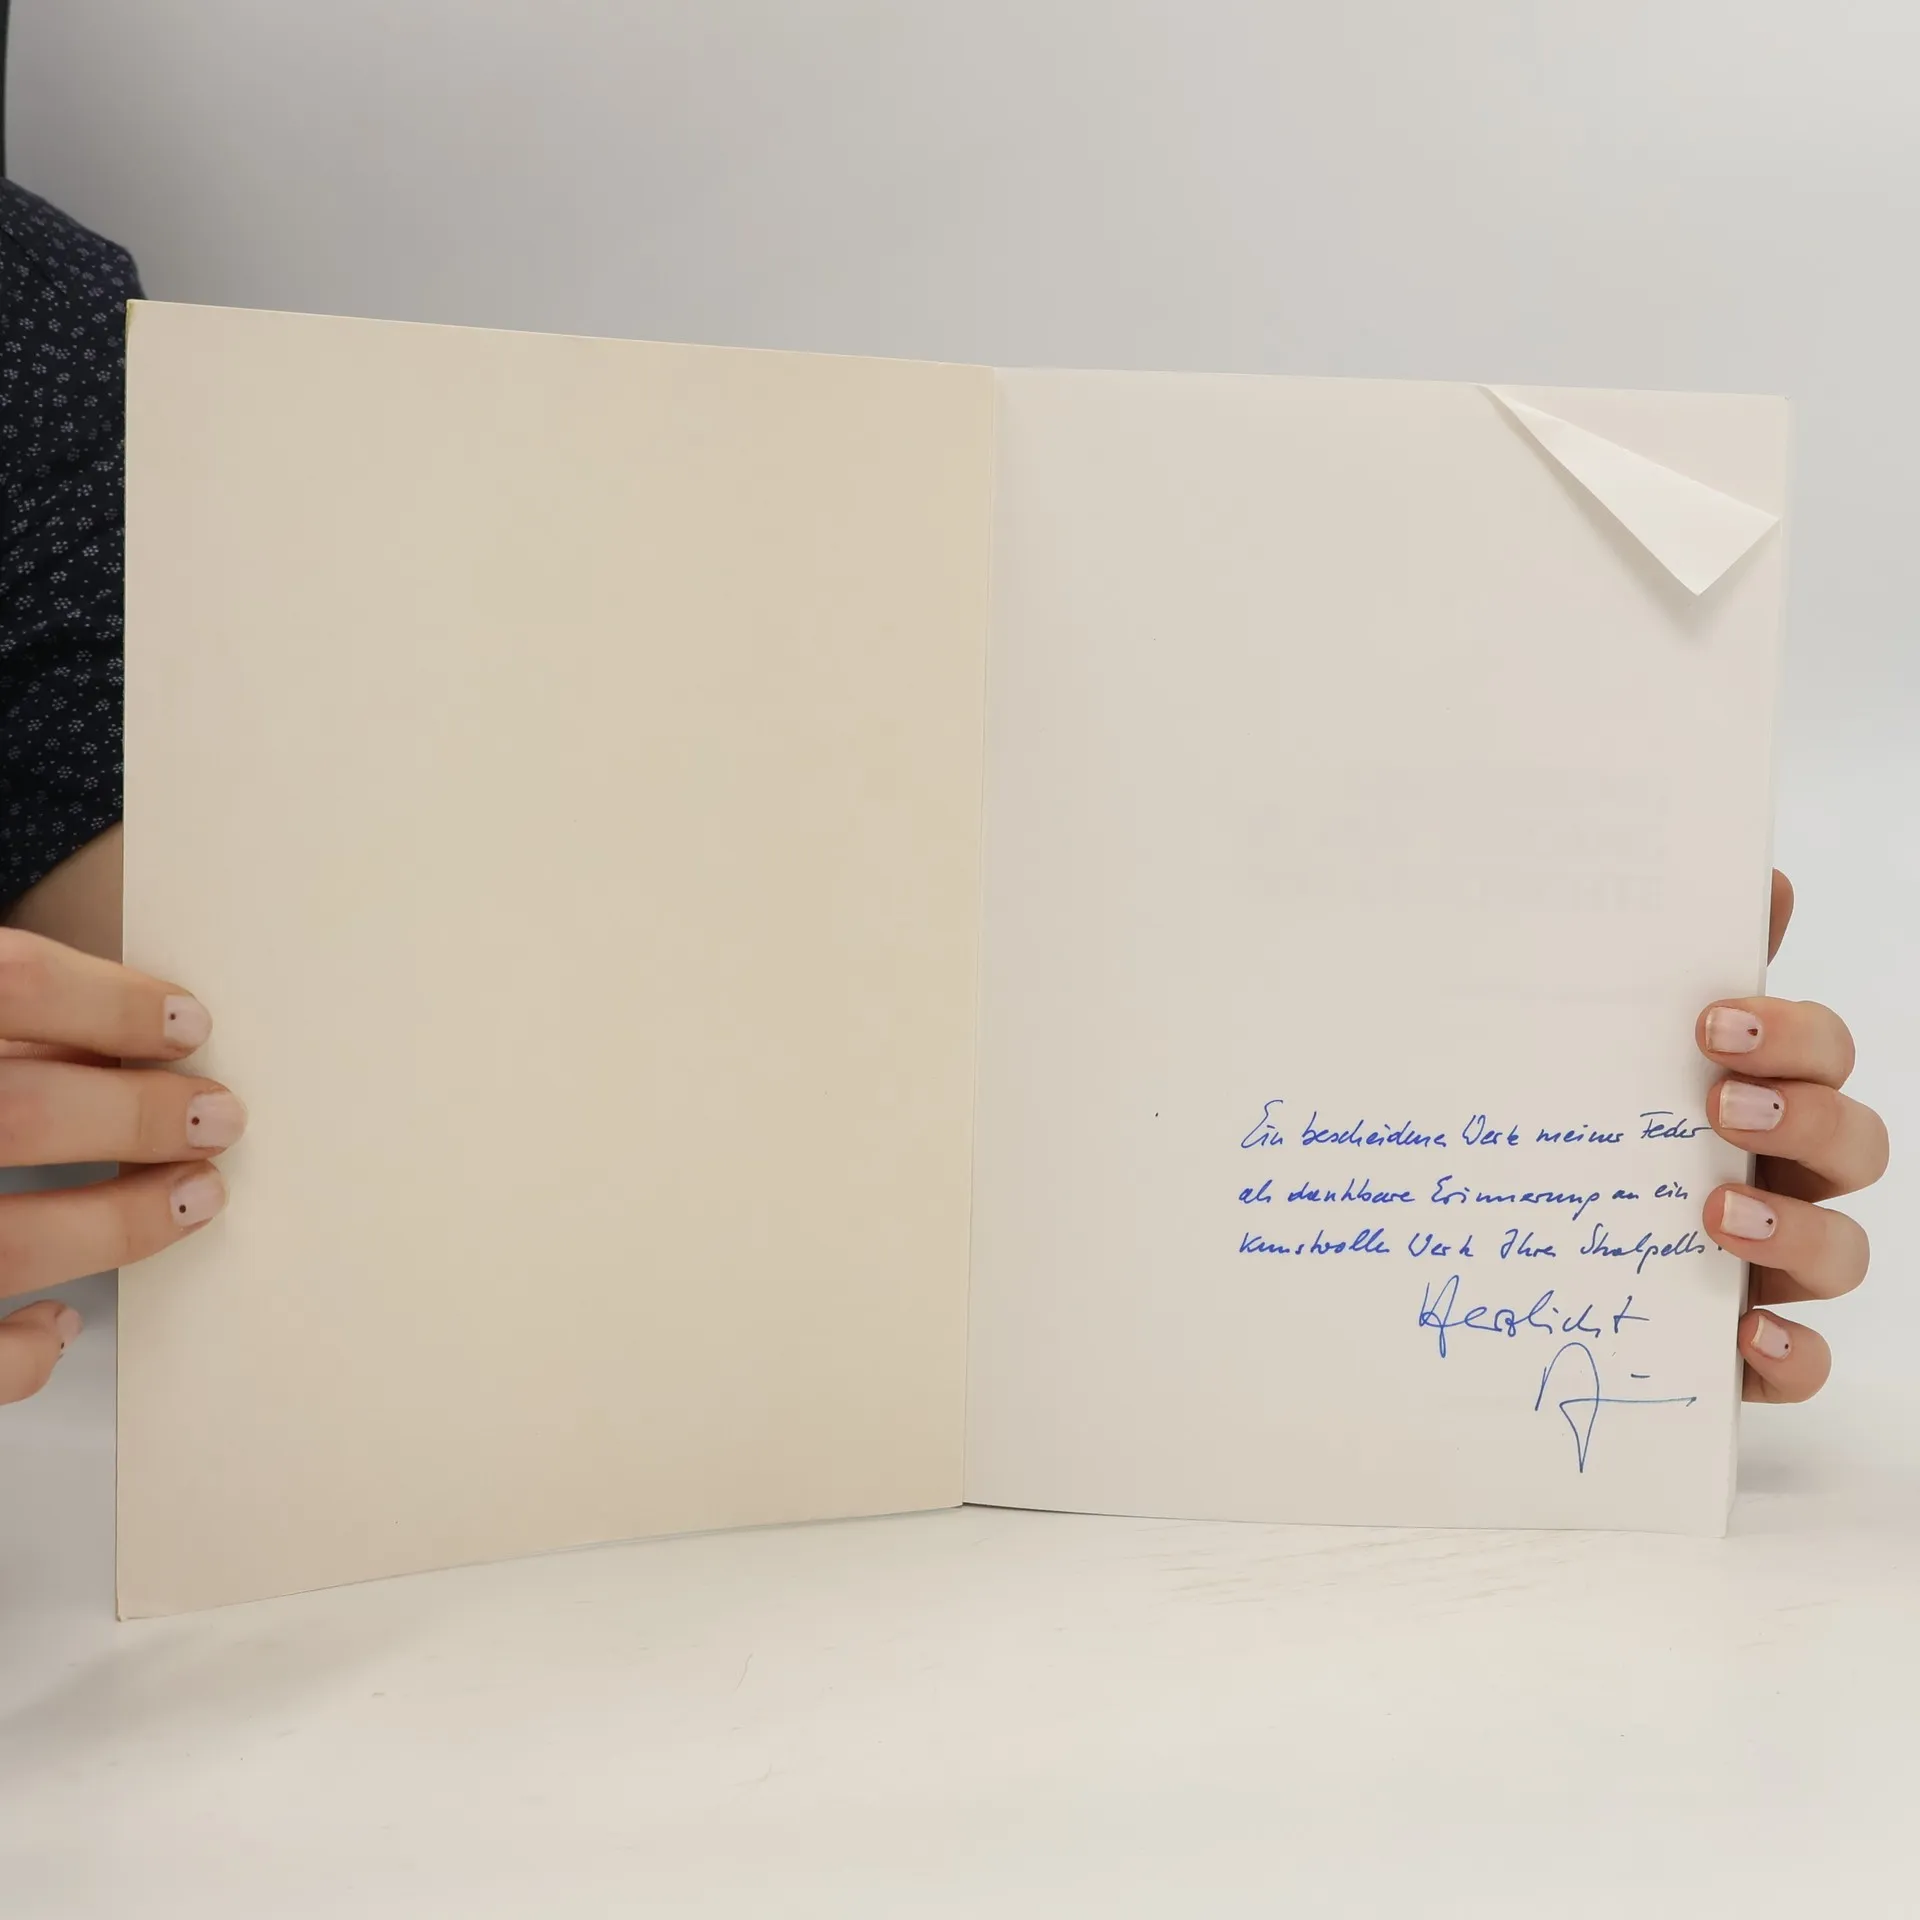 Ein bescheidenes Werk meiner Feder
als dankbare Erinnerung an ein
kunstvolles Werk Ihres Skalpells!
Herzlichst